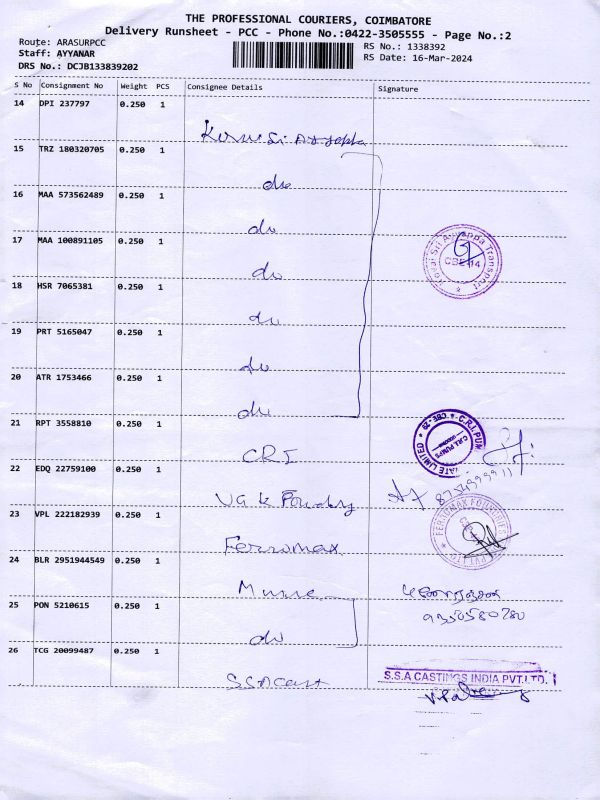 THE PROFESSIONAL COURIERS, COIMBATORE
Delivery Runsheet - PCC - Phone No.:0422-3505555 - Page No.:2
Route: ARASURPCC
RS No.: 1338392
Staff: AYYANAR
RS Date: 16-Mar-2024
DRS No.: DCJB133839202
S No Consignment No Weight PCS Consignee Details Signature
14 DPI 237797 0.250 1
15 TRZ 180320705 0.250 1
do
16 MAA 573562489 0.250 1
do
17 MAA 100891105 0.250 1
do
Kovai Sri Ayyappa Transport
CBE-14
18 HSR 7065381 0.250 1
do
19 PRT 5165047 0.250 1
do
20 ATR 1753466 0.250 1
do
21 RPT 3558810 0.250 1
CRI
22 EDQ 22759100 0.250 1
VGK Foundry
23 VPL 222182939 0.250 1
Ferromax
24 BLR 2951944549 0.250 1
25 PON 5210615 0.250 1
do
26 TCG 20099487 0.250 1
SSA Cast
S.S.A CASTINGS INDIA PVT.LTD.